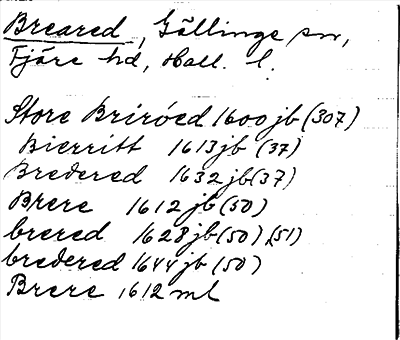 Breared, Gällinge sn,
Fjäre hd, Hall. l.
Store Briröed 1600 jb (307)
Bierritt 1613 jb (37)
Bredered 1632 jb (37)
Brere 1612 jb (50)
brered 1628 jb (50) (51)
bredered 1644 jb (50)
Brere 1612 ml